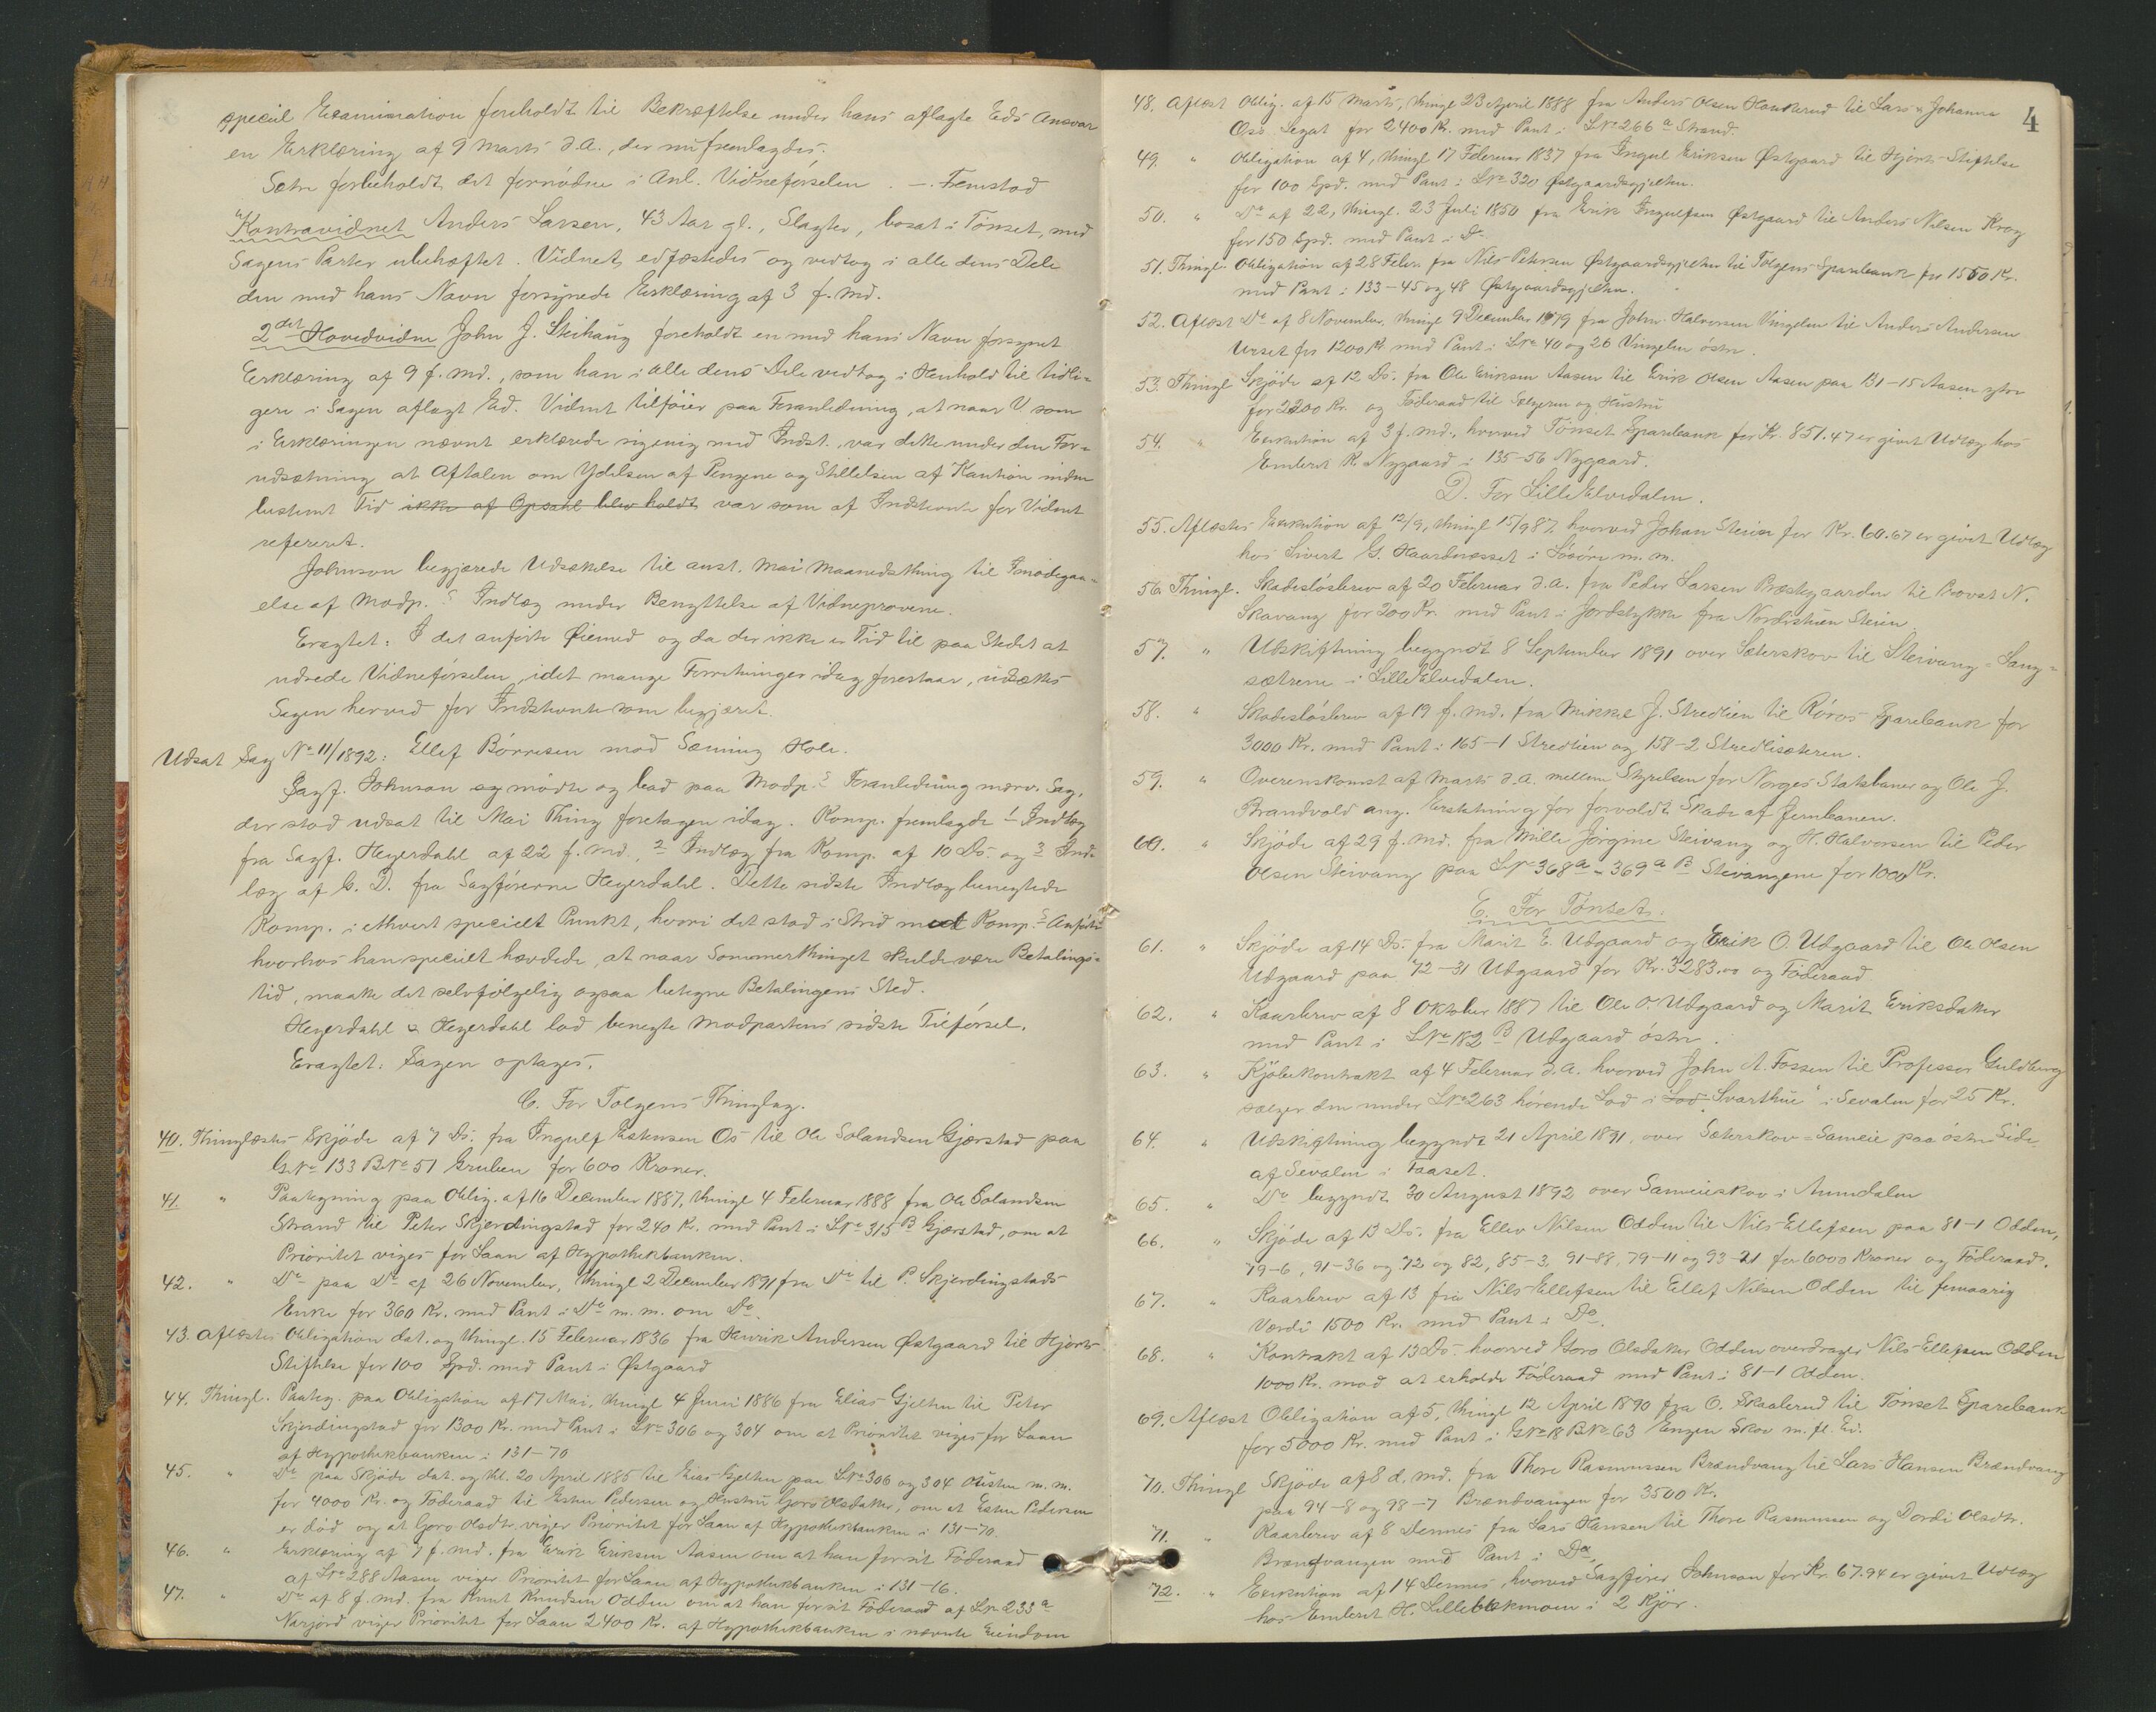 speciel Examination foreholdt til Bekræftelse under hans aflagte Eds Ansvar
en Erklæring af 9 Marts d.A., der nu fremlagdes.
Sætre forbeholdt det fornødne i Anl. Vidneførselen. —. Fremstod
Kontravidnet Anders Larsen, 43 Aar gl., Slagter, bosat i Tönset, med
Sagens Parter ubehæftet. Vidnet edfæstedes og vedtog i alle dens Dele
den med hans Navn forsynede Erklæring af 3 f. Md.
2det Hovedvidne John J. Steihaug foreholdt en med hans Navn forsynet
Erklæring af 9 f. Md., som han i alle dens Dele vedtog i Henhold til tidli-
gere i Sagen aflagt Ed. Vidnet tilföier paa Foranledning, at naar V. som
i Erklæringen nævnt erklærede sig enig med Indst., var dette under den For-
udsætning at Aftalen om Ydelsen af Pengene og Stillelsen af Kaution inden
bestemt Tid ikke af Opsahl blev holdt var som af Indstevnte for Vidnet
refereret.
Johnson begjærede Udsættelse til anst. Mai Maanedsthing til Imødegaa-
else af Modp.s Indlæg under Benyttelse af Vidneprovene.
Eragtet: I det anførte Øiemed og da der ikke er Tid til paa Stedet at
udrede Vidneførselen, idet mange Forretninger idag forestaar, udsættes
Sagen herved for Indstevnte som begjæret.
Udsat Sag No 11/1892: Ellef Börresen mod Sæming Hole.
Sagf. Johnson og mødte og bad paa Modp.s Foranledning nærv. Sag,
der stod udsat til Mai Thing foretagen idag. Komp. fremlagde 1 Indlæg
fra Sagf. Heyerdahl af 22 f. Md., 2 Indlæg fra Komp. af 10 Ds. og 3 Ind-
læg af G. D. fra Sagførerne Heyerdahl. Dette sidste Indlæg benegtede
Komp. i ethvert specielt Punkt, hvori det stod i Strid med Komp.s Anførte
hvorhos han specielt hævdede, at naar Sommerthinget skulde være Betalings-
tid, maatte det selvfølgelig ogsaa betegne Betalingens Sted.
Heyerdahl & Heyerdahl lod benegte Modpartens sidste Tilførsel.
Eragtet: Sagen optages.
C. For Tolgens Thinglag.
40. Thinglæstes Skjöde af 7 Ds. fra Ingulf Estensen Os til Ole Solandsen Gjærstad paa
G.No 133 B.No 51 Gruben for 600 Kroner.
41. " Paategning paa Oblig. af 16 December 1887, thingl 4 Februar 1888 fra Ole Solandsen
Strand til Peter Skjerdingstad for 240 Kr. med Pant i LNo 315 B Gjærstad, om at
Prioritet viges for Laan af Hypothekbanken.
42. " Do paa Do af 26 November, thingl 2 December 1891 fra Do til P. Skjerdingstads
Enke for 360 Kr. med Pant i Do m. m. om Do.
43. Aflæstes Obligation dat. og thingl. 15 Februar 1836 fra Henrik Andersen Østgaard til Hjorts
Stiftelse for 100 Spd. med Pant i Østgaard
44. Thingl. Paateg. paa Obligation af 17 Mai, thingl 4 Juni 1886 fra Elias Gjelten til Peter
Skjerdingstad for 1300 Kr. med Pant i LNo 306 og 304 om at Prioritet viges for Laan
af Hypothekbanken i 131-70
45. " Do paa Skjøde dat. og thl. 20 April 1885 til Elias Gjelten paa LNo 306 og 304 Øusten m. m.
for 4000 Kr. og Föderaad til Esten Pedersen og Hustru Goro Olsdatter, om at Esten Pedersen
er död og at Goro Olsdtr. viger Prioritet for Laan af Hypothekbanken i 131-70.
46. " Erklæring af 7 f. Md. fra Erik Eriksen Aasen om at han for sit Föderaad
af LNo 288 Aasen viger Prioritet for Laan af Hypothekbanken i 131-16.
47. " Do af 8 f. Md. fra Knut Knudsen Odden om at han for sit Föderaad af LNo 233 a
Narjord viger Prioritet for Laan 2400 Kr. af Hypothekbanken i nævnte Eiendom
4
48. Aflæst Oblig. af 15 Marts, thingl 23 April 1888 fra Anders Olsen Hankerud til Lars & Johanna
Oss Legat for 2400 Kr. med Pant i LNo 266 a Strand.
49. " Obligation af 4, thingl 17 Februar 1837 fra Ingul Eriksen Østgaard til Hjorts Stiftelse
for 100 Spd. med Pant i LNo 320 Østgaardsgjelten.
50. " Do af 22, thingl. 23 Juli 1850 fra Erik Ingulfsen Østgaard til Anders Nilsen Krog
for 150 Spd. med Pant i Do
51. Thingl. Obligation af 28 Febr. fra Nils Petersen Østgaardsgjelten til Tolgens Sparebank for 1550 Kr.
med Pant i 133-45 og 48 Østgaardsgjelten.
52. Aflæst Do af 8 November, thingl 9 December 1879 fra John Halvorsen Vingelen til Anders Andersen
Urset for 1200 Kr. med Pant i LNo 40 og 26 Vingelen östre.
53. Thingl Skjøde af 12 Ds. fra Ole Eriksen Aasen til Erik Olsen Aasen paa 131-15 Aasen ytre
for 2200 Kr. og Föderaad til Sælgeren og Hustru
54. " Exekution af 3 f. Md., hvorved Tönset Sparebank for Kr. 851.47 er givet Udlæg hos
Embret R. Nygaard i 135-56 Nygaard.
D. For Lille Elvedalen.
55. Aflæstes Exekution af 12/9, thingl 15/9 87, hvorved Johan Steien for Kr. 60.67 er givet Udlæg
hos Sivert G. Haarderusset i Lösöre m. m.
56. Thingl. Skadeslösbrev af 20 Februar d.A. fra Peder Larsen Præstegaarden til Provst N.
Skavang for 200 Kr. med Pant i Jordstykke fra Nordistuen Steien.
57. " Udskiftning begyndt 8 September 1891 over Sæterskov til Steivang-Lang-
sætrene i Lille Elvedalen.
58. " Skadeslösbrev af 19 f. Md. fra Mikkel J. Stredlien til Röros Sparebank for
3000 Kr. med Pant i 165-1 Stredlien og 158-2 Stredlisæteren.
59. " Overenskomst af Marts d.A. mellem Styrelsen for Norges Statsbaner og Ole J.
Brandvold ang. Erstatning for forvoldt Skade af Jernbanen.
60. " Skjöde af 29 f. Md. fra Mille Jörgine Steivang og H. Halvorsen til Peder
Olsen Steivang paa LNo 368 a - 369 a B Steivangene for 1000 Kr.
E. For Tönset.
61. " Skjöde af 14 Ds. fra Marit E. Udgaard og Erik O. Udgaard til Ole Olsen
Udgaard paa 72-31 Udgaard for Kr. 3283.00 og Föderaad
62. " Kaarbrev af 8 Oktober 1887 til Ole O. Udgaard og Marit Eriksdatter
med Pant i LNo 182 B Udgaard östre.
63. " Kjöbekontrakt af 4 Februar d.A. hvorved John A. Fossen til Professor Guldberg
sælger den under LNo 263 hörende Lod i Lod „Svarthue" i Sevalen for 25 Kr.
64. " Udskiftning begyndt 21 April 1891, over Sæterskov-Sameie paa östre Side
af Sevalen i Faaset.
65. " Do begyndt 30 August 1892 over Sameieskov i Aumdalen
66. " Skjöde af 13 Ds. fra Ellev Nilsen Odden til Nils Ellefsen paa 81-1 Odden,
79-6, 91-36 og 72 og 82, 85-3, 91-88, 79-11 og 93-21 for 6000 Kroner og Föderaad.
67. " Kaarbrev af 13 fra Nils Ellefsen til Ellef Nilsen Odden til femaarig
Værdi 1500 Kr. med Pant i Do.
68. " Kontrakt af 13 Ds. hvorved Goro Olsdatter Odden overdrager Nils Ellefsen Odden
1000 Kr. mod at erholde Föderaad med Pant i 81-1 Odden.
69. Aflæst Obligation af 5, thingl 12 April 1890 fra O. Skaalerud til Tönset Sparebank
for 5000 Kr. med Pant i GNo 18 BNo 63 Engen Skov m. fl. Ei.
70. Thingl Skjöde af 8 d. Md. fra Thore Rasmussen Brændvang til Lars Hansen Brændvang
paa 94-8 og 98-7 Brændvangen for 3500 Kr.
71. " Kaarbrev af 8 Dennes fra Lars Hansen til Thore Rasmussen og Dordi Olsdtr.
Brændvangen med Pant i Do.
72. " Exekution af 14 Dennes, hvorved Sagfører Johnson for Kr. 67.94 er givet Udlæg
hos Embret H. Lillebækmoen i 2 Kjör.